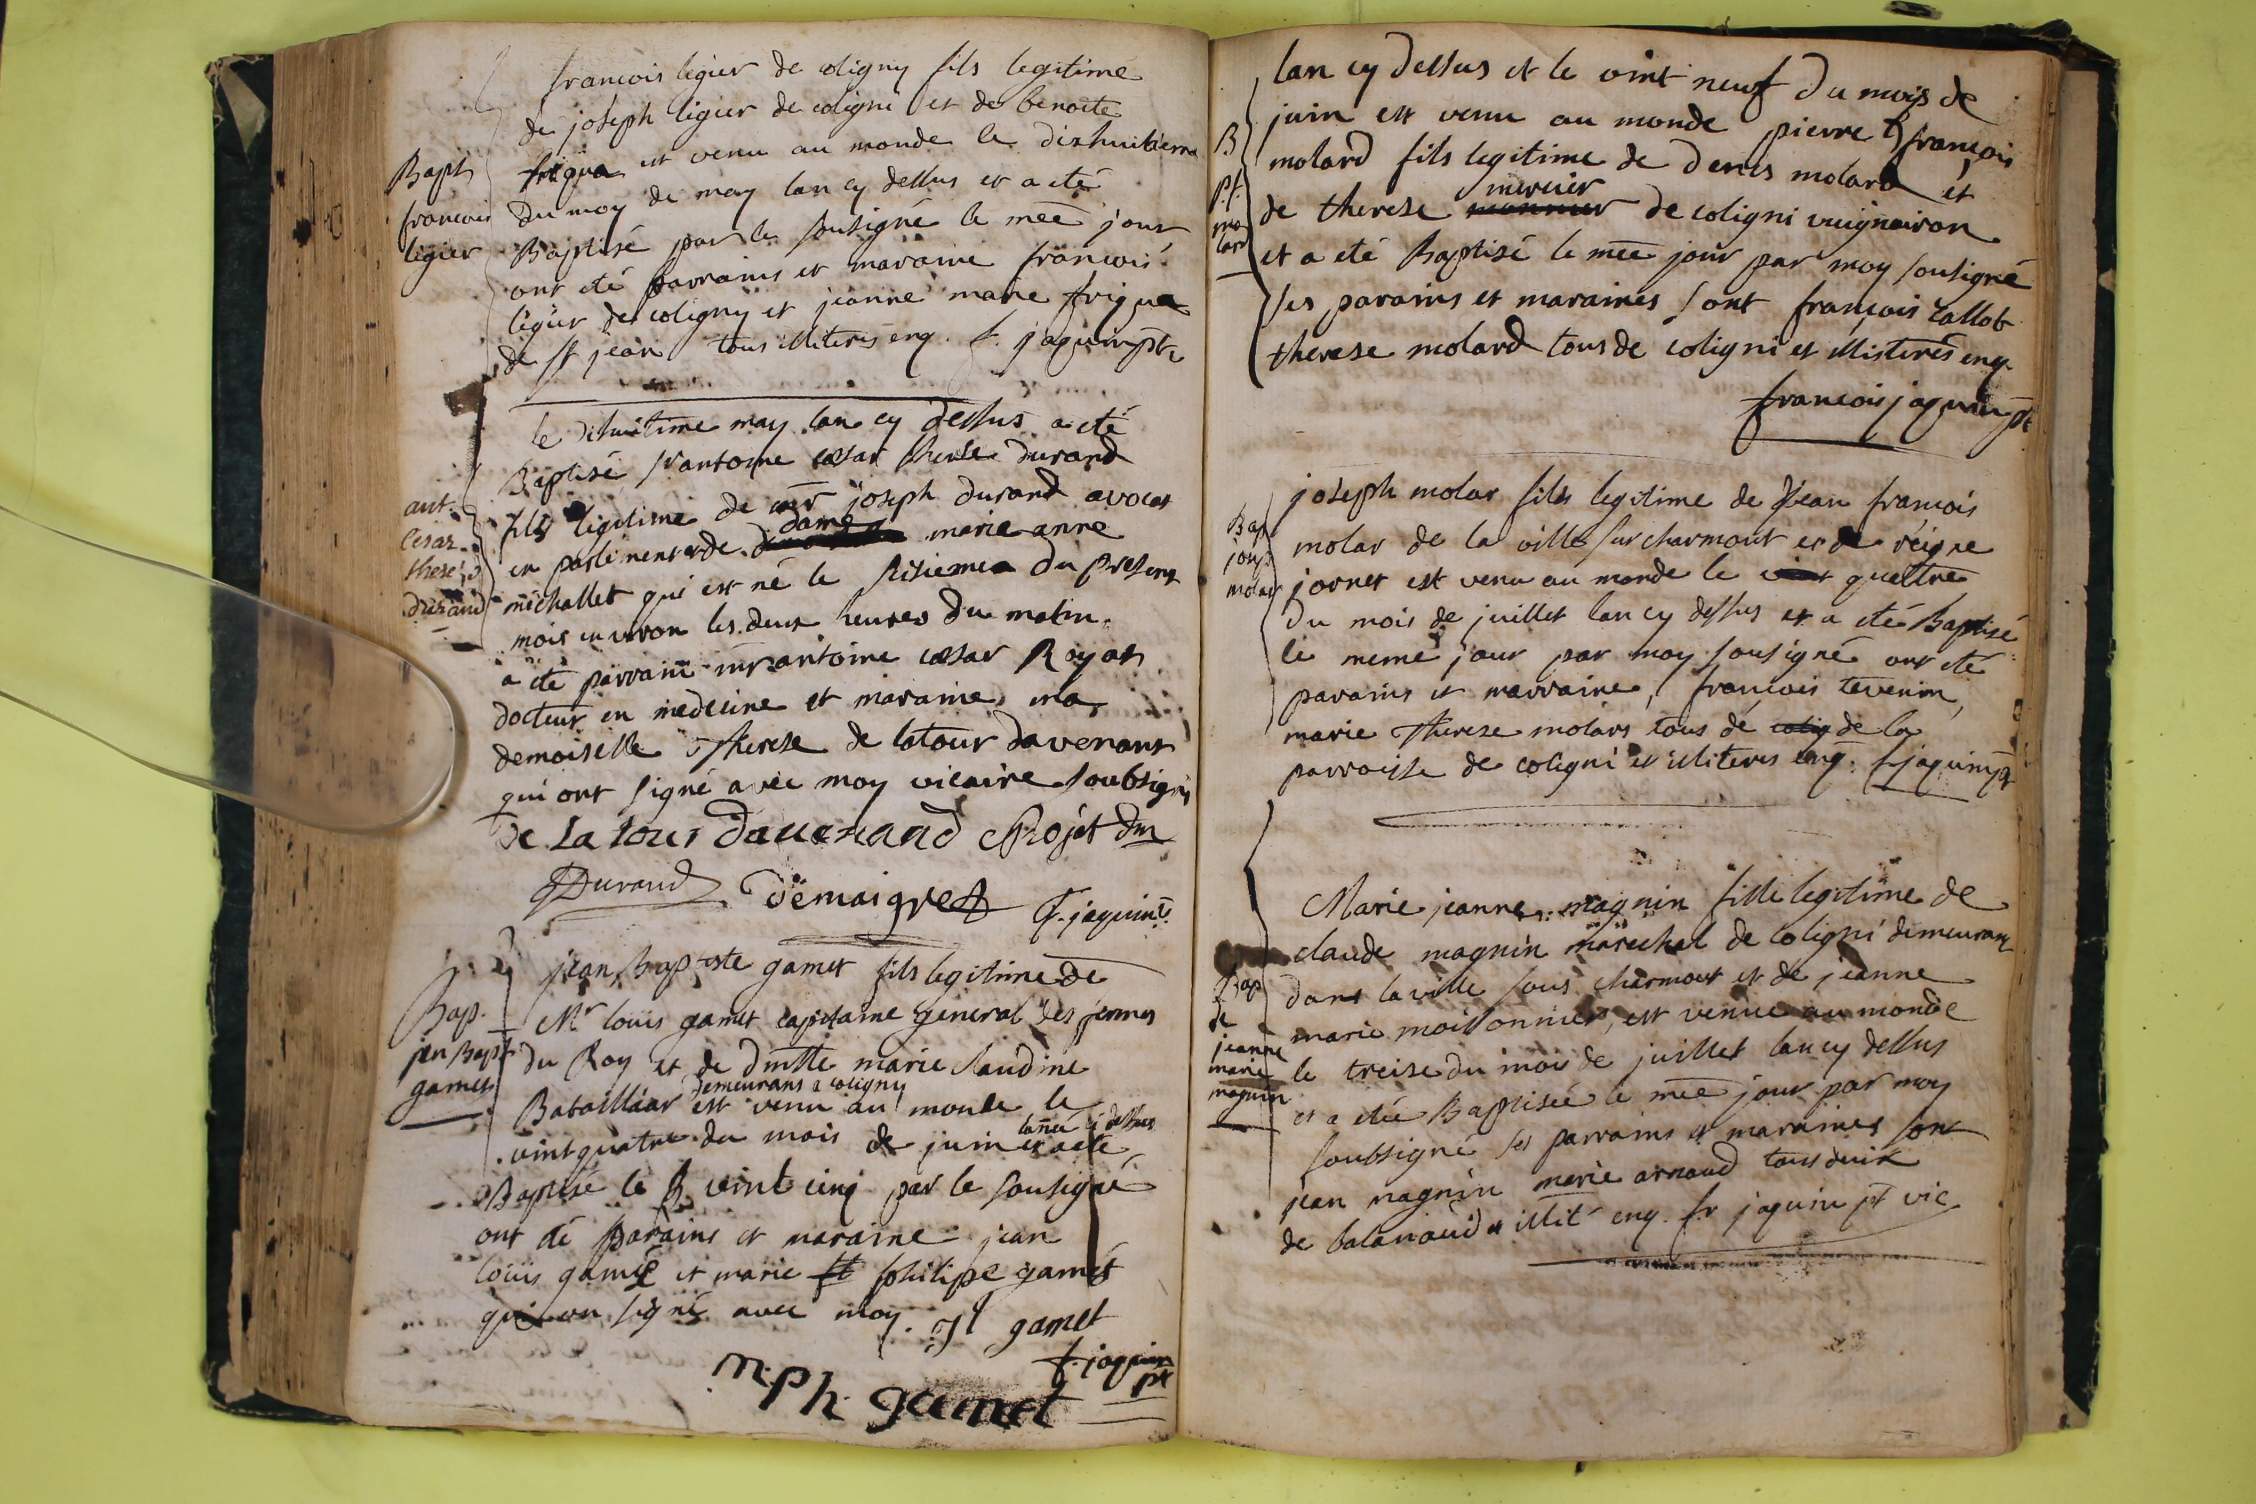 francois ligier de coligny fils legitime
de joseph ligier de coligni et de benoite
frigua est venu au monde le dixhuitieme
Bapt
francois
ligier
du moy de may lan cy dessus et a eté
Baptisé par le sousigné le mee jour
ont eté parrains et maraine francois
ligier de coligny et jeanne marie frigua
de st jean tous illiteres enq. f. jaquin ptr
le dishuitime may lan cy dessus a eté
Baptisé sr antoine cesar therese durand
ant.
cesar
therese
durand
fils legitime de mr joseph durand avocat
en parlement et de dame marie anne
michallet qui est né le sisieme du present
mois environ les deux heures du matin.
a eté parrain mr antoine cesar Royat
docteur en medecine et maraine, ma
demoiselle therese de latour davenant
qui ont signé avec moy vicaire soubsigné
De La tour davenand Rojat dm
Durand demaigret f. jaquin
jean Baptiste gamet fils legitime de
Bap.
jean Bapt
gamet
Mr louis gamet capitaine general des fermes
du Roy et de dmlle marie claudine
Bataillar demeurans a coligny est venu au monde le
vint quatre du mois de juin lanee ci dessus et a eté
Baptisé le vint cinq par le sousigné
ont eté parains et maraine jean
louis gamet et marie philipe gamet
qui on signé avec moy. jl gamet
f. jaquin
pt
m. ph. gamet
lan cy dessus et le vint neuf du mois de
juin est venu au monde pierre francois
B
p. f.
mo
lard
molard fils legitime de denis molard et
de therese mercier de coligni
et a eté Baptisé le mee jour par moy sousigné
ses parains et maraines sont françois callot
therese molard tous de coligni et illisteres enq.
francois jaquin pt
joseph molar fils legitime de jean francois
Bap
josp
molar
molar de la ville sur charmout et de reigne
jornet est venu au monde le quattre
du mois de juillet lan cy dessus et a eté Baptisé
le meme jour par moy sousigné ont eté
parains et marraine, françois tevenin,
marie therese molars tous de de la
parroisse de coligni et illiteres enq. f jaquin pt
Marie jeanne magnin fille legitime de
claude magnin marechal de coligni demeurant
Bap
de
jeanne
marie
magnin
dans laville sous charmout et de jeanne
marie moissonnier, est venue au monde
le treise du mois de juillet lan cy dessus
et a etée Baptisée le mee jour par moy
soubsigné ses parrains et maraines sont
jean magnin marie arnaud tous deux
de balanaud et illit enq. fr jaquin pt vic